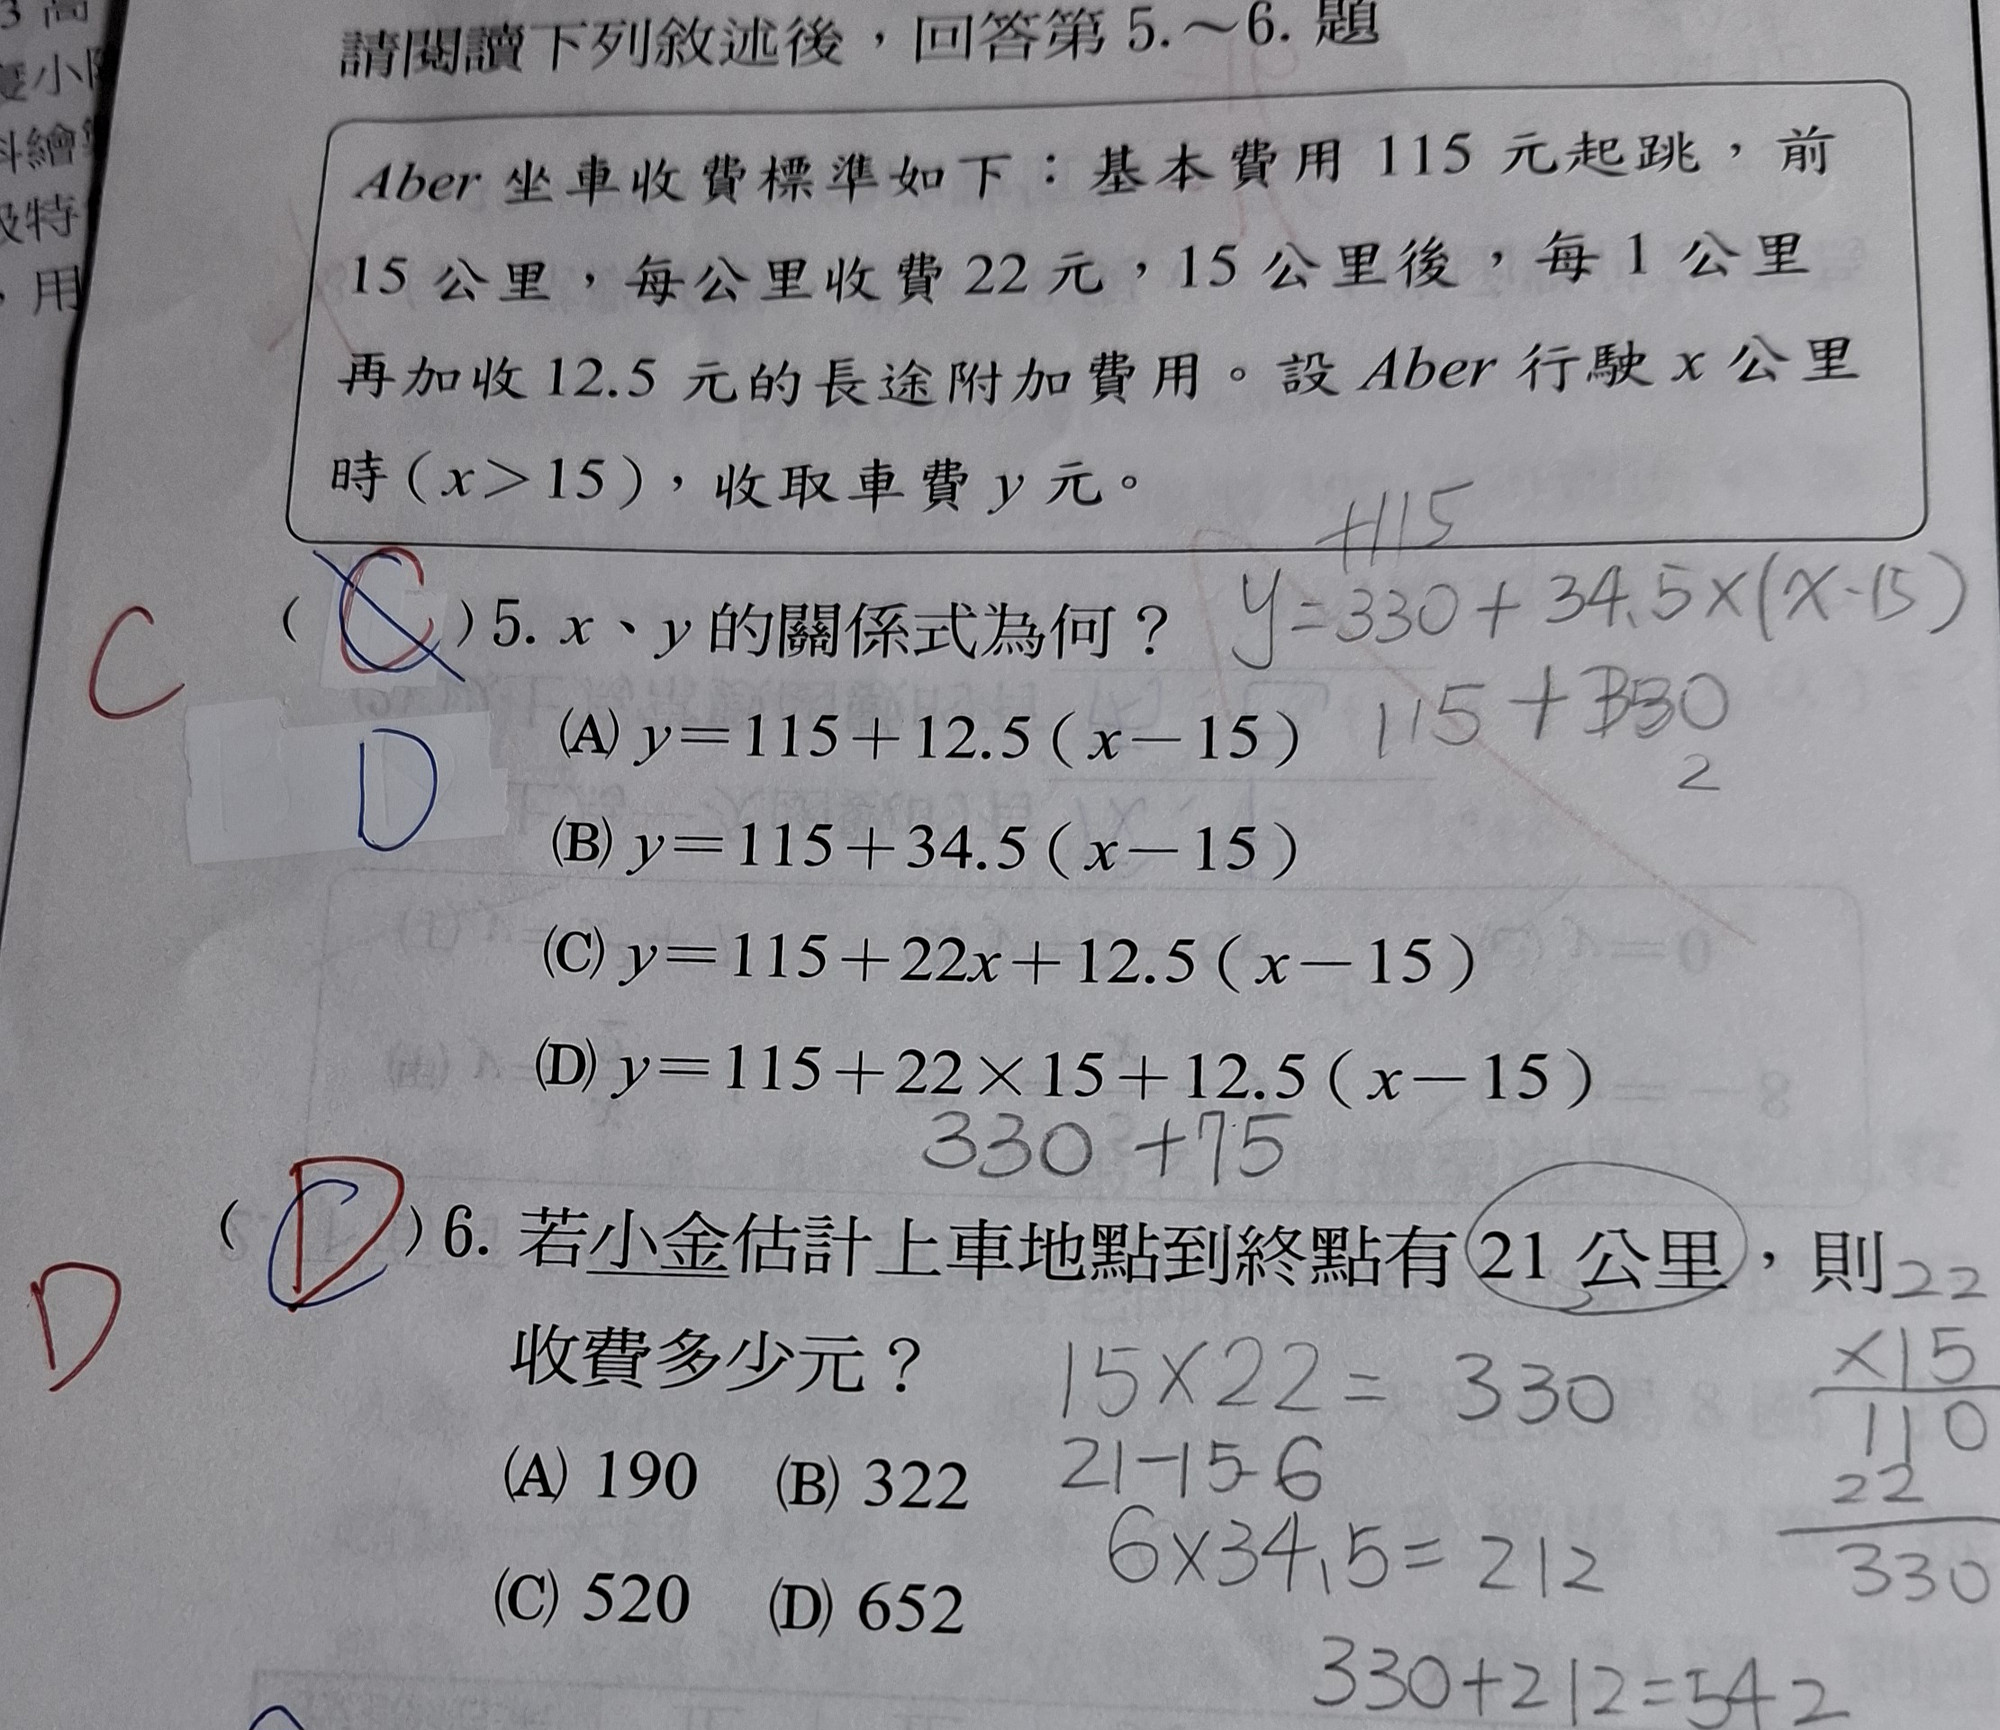 請閱讀下列敘述後，回答第 5.～6. 題
Aber 坐車收費標準如下：基本費用 115 元起跳，前
15 公里，每公里收費 22 元，15 公里後，每 1 公里
再加收 12.5 元的長途附加費用。設 Aber 行駛 x 公里
時（x＞15），收取車費 y 元。
+115
C
（ C ）5. x、y 的關係式為何？ y=330+34.5×(x-15)
115+330
2
D
(A) y＝115＋12.5（x－15）
(B) y＝115＋34.5（x－15）
(C) y＝115＋22x＋12.5（x－15）
(D) y＝115＋22×15＋12.5（x－15）
330 +75
D
（ D ）6. 若小金估計上車地點到終點有 21 公里，則
收費多少元？
(A) 190 (B) 322
(C) 520 (D) 652
15×22= 330
21-15-6
6×34.5= 212
330+212=542
22
×15
110
22
330